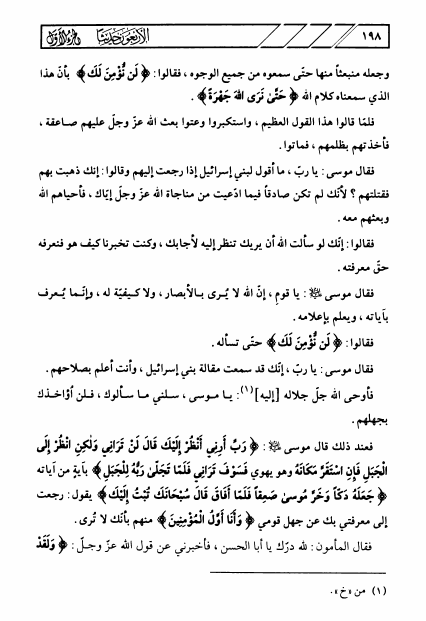 ١٩٨
الأربعون حديثاً
ج / الجزء الأول
وجعله منبعثاً منها حتّى سمعوه من جميع الوجوه ، فقالوا : ﴿ لَن نُّؤْمِنَ لَكَ ﴾ بأنّ هذا
الذي سمعناه كلام الله ﴿ حَتَّىٰ نَرَى اللهَ جَهْرَةً ﴾ .
فلمّا قالوا هذا القول العظيم ، واستكبروا وعتوا بعث الله عزّ وجلّ عليهم صاعقة ،
فأخذتهم بظلمهم ، فماتوا .
فقال موسى : يا ربّ ، ما أقول لبني إسرائيل إذا رجعت إليهم وقالوا : إنك ذهبت بهم
فقتلتهم ؟ لأنّك لم تكن صادقاً فيما ادّعيت من مناجاة الله عزّ وجلّ إيّاك ، فأحياهم الله
وبعثهم معه .
فقالوا : إنّك لو سألت الله أن يريك تنظر إليه لأجابك ، وكنت تخبرنا كيف هو فنعرفه
حقّ معرفته .
فقال موسى ﷺ : يا قوم ، إنّ الله لا يُرى بالأبصار ، ولا كيفيّة له ، وإنّما يُعرف
بآياته ، ويعلم بإعلامه .
فقالوا : ﴿ لَن نُّؤْمِنَ لَكَ ﴾ حتّى تسأله .
فقال موسى : يا ربّ ، إنّك قد سمعت مقالة بني إسرائيل ، وأنت أعلم بصلاحهم .
فأوحى الله جلّ جلاله [إليه](١) : يا موسى ، سلني ما سألوك ، فلن أؤاخذك
بجهلهم .
فعند ذلك قال موسى ﷺ : ﴿ رَبِّ أَرِنِي أَنْظُرْ إِلَيْكَ قَالَ لَنْ تَرَانِي وَلَكِنِ انْظُرْ إِلَى
الْجَبَلِ فَإِنِ اسْتَقَرَّ مَكَانَهُ وهو يهوي فَسَوْفَ تَرَانِي فَلَمَّا تَجَلَّى رَبُّهُ لِلْجَبَلِ ﴾ بآيةٍ من آياته
﴿ جَعَلَهُ دَكّاً وَخَرَّ مُوسىٰ صَعِقاً فَلَمَّا أَفَاقَ قَالَ سُبْحَانَكَ تُبْتُ إِلَيْكَ ﴾ يقول : رجعت
إلى معرفتي بك عن جهل قومي ﴿ وَأَنَا أَوَّلُ الْمُؤْمِنِينَ ﴾ منهم بأنّك لا تُرى .
فقال المأمون : لله درّك يا أبا الحسن ، فأخبرني عن قول الله عزّ وجلّ : ﴿ وَلَقَدْ
(١) من «خ» .